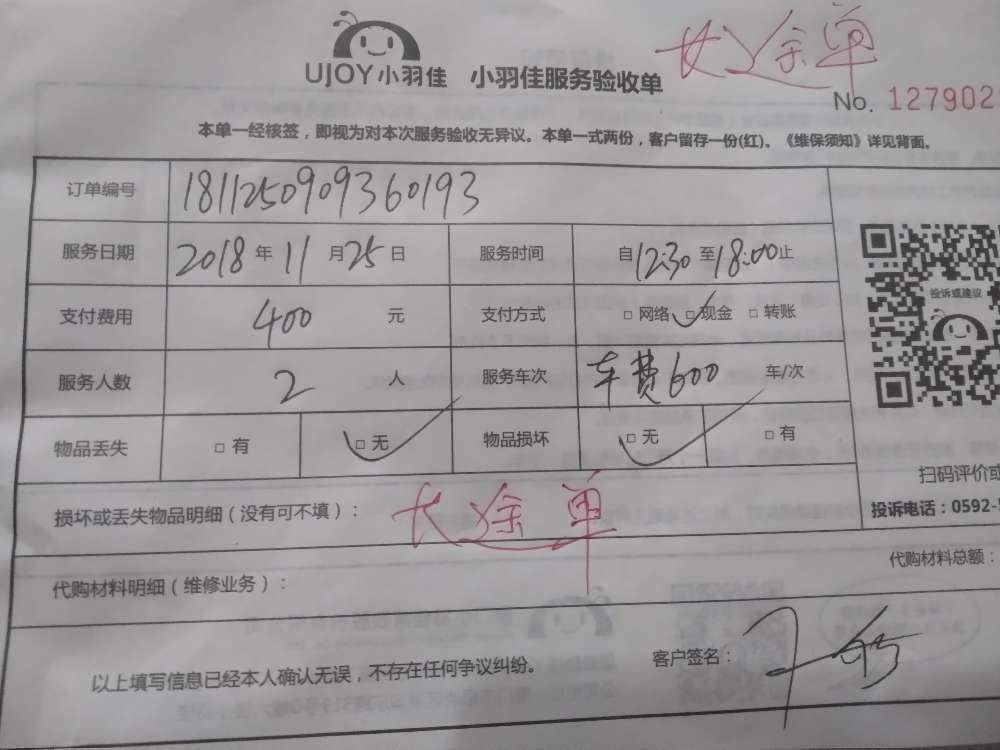 UJOY小羽佳 小羽佳服务验收单
长途单
No. 127902
本单一经核签，即视为对本次服务验收无异议。本单一式两份，客户留存一份(红)。《维保须知》详见背面。
订单编号 1811250909360193
服务日期 2018 年 11 月 25 日 服务时间 自 12:30 至 18:00 止
支付费用 400 元 支付方式 □ 网络 □ 现金 □ 转账
投诉或建议
服务人数 2 人 服务车次 车费600 车/次
物品丢失 □ 有 □ 无 物品损坏 □ 无 □ 有
扫码评价或
损坏或丢失物品明细（没有可不填）： 长途单
投诉电话：0592-
代购材料明细（维修业务）：
代购材料总额：
以上填写信息已经本人确认无误，不存在任何争议纠纷。
客户签名：